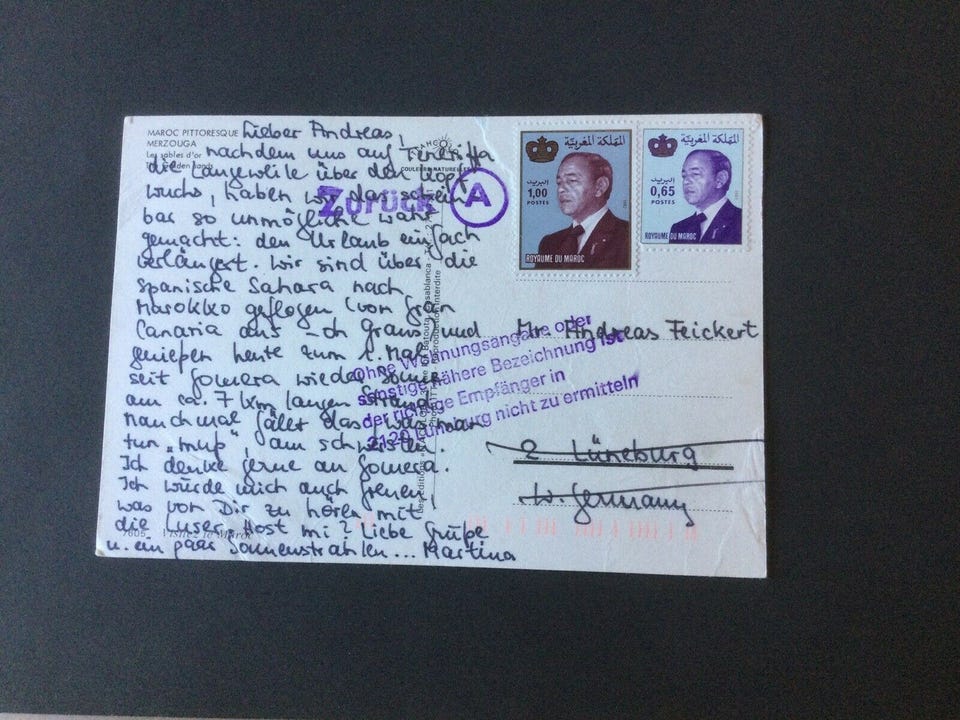 MAROC PITTORESQUE
MERZOUGA
Les sables d'or
The Golden sands
COULEURS NATURELLES
Lieber Andreas,
nachdem uns auf
die Langeweile über den Kopf
wuchs, haben wir das schein
bar so unmögliche wahr
gemacht: den Urlaub einfach
verlängert. Wir sind über die
spanische Sahara nach
Marokko geflogen (von Gran
Canaria aus - oh Graus) und
genießen heute zum 1. Mal
seit Gomera wieder Sonne
am ca. 7 km langen Strand.
Manchmal fällt das, was man
tun "muß", am schwersten.
Ich denke gerne an Gomera.
Ich würde mich auch freuen,
was von Dir zu hören, mit
die Luser. Host mi? Liebe Grüße
u. ein paar Sonnenstrahlen... Martina
7605 Visitez le Maroc
Zurück
A
Ohne Wohnungsangabe oder
sonstige nähere Bezeichnung ist
der richtige Empfänger in
2120 Lüneburg nicht zu ermitteln
المملكة المغربية
البريد
1,00
POSTES
ROYAUME DU MAROC
المملكة المغربية
البريد
0,65
POSTES
ROYAUME DU MAROC
Mr. Andreas Feickert
2 Lüneburg
W. Germany
Casablanca
Reproduction Interdite